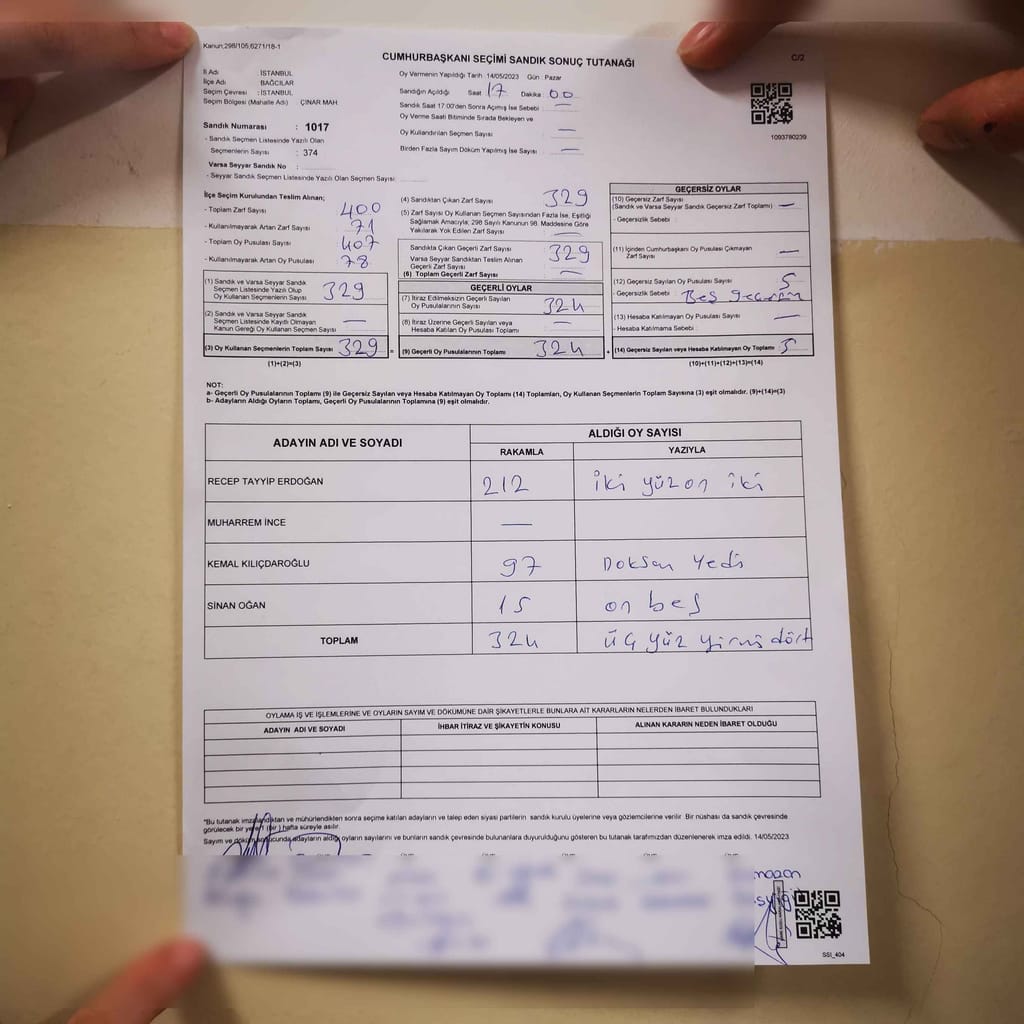 Kanun;298/105,6271/18-1
CUMHURBAŞKANI SEÇİMİ SANDIK SONUÇ TUTANAĞI
C/2
İl Adı : İSTANBUL
İlçe Adı : BAĞCILAR
Seçim Çevresi : İSTANBUL
Seçim Bölgesi (Mahalle Adı) : ÇINAR MAH
Sandık Numarası : 1017
- Sandık Seçmen Listesinde Yazılı Olan
Seçmenlerin Sayısı : 374
Varsa Seyyar Sandık No :
- Seyyar Sandık Seçmen Listesinde Yazılı Olan Seçmen Sayısı:
Oy Vermenin Yapıldığı Tarih :14/05/2023 Gün : Pazar
Sandığın Açıldığı Saat :17 Dakika : 00
Sandık Saat 17:00'den Sonra Açımış İse Sebebi : —
Oy Verme Saati Bitiminde Sırada Bekleyen ve
Oy Kullandırılan Seçmen Sayısı : —
Birden Fazla Sayım Döküm Yapılmış İse Sayısı : —
1093780239
İlçe Seçim Kurulundan Teslim Alınan;
- Toplam Zarf Sayısı : 400
- Kullanılmayarak Artan Zarf Sayısı : 71
- Toplam Oy Pusulası Sayısı : 407
- Kullanılmayarak Artan Oy Pusulası : 78
(1) Sandık ve Varsa Seyyar Sandık
Seçmen Listesinde Yazılı Olup
Oy Kullanan Seçmenlerin Sayısı : 329
(2) Sandık ve Varsa Seyyar Sandık
Seçmen Listesinde Kayıtlı Olmayan
Kanun Gereği Oy Kullanan Seçmen Sayısı : —
(3) Oy Kullanan Seçmenlerin Toplam Sayısı : 329 =
(1)+(2)=(3)
(4) Sandıktan Çıkan Zarf Sayısı : 329
(5) Zarf Sayısı Oy Kullanan Seçmen Sayısından Fazla İse, Eşitliği
Sağlamak Amacıyla; 298 Sayılı Kanunun 98. Maddesine Göre
Yakılarak Yok Edilen Zarf Sayısı : —
Sandıkta Çıkan Geçerli Zarf Sayısı : 329
Varsa Seyyar Sandıktan Teslim Alınan
Geçerli Zarf Sayısı
(6) Toplam Geçerli Zarf Sayısı : —
GEÇERLİ OYLAR
(7) İtiraz Edilmeksizin Geçerli Sayılan
Oy Pusulalarının Sayısı : 324
(8) İtiraz Üzerine Geçerli Sayılan veya
Hesaba Katılan Oy Pusulası Toplamı : —
(9) Geçerli Oy Pusulalarının Toplamı : 324 +
GEÇERSİZ OYLAR
(10) Geçersiz Zarf Sayısı
(Sandık ve Varsa Seyyar Sandık Geçersiz Zarf Toplamı) : —
- Geçersizlik Sebebi :
(11) İçinden Cumhurbaşkanı Oy Pusulası Çıkmayan
Zarf Sayısı : —
(12) Geçersiz Sayılan Oy Pusulası Sayısı : 5
- Geçersizlik Sebebi : Beş
(13) Hesaba Katılmayan Oy Pusulası Sayısı : —
- Hesaba Katılmama Sebebi :
(14) Geçersiz Sayılan veya Hesaba Katılmayan Oy Toplamı : 5
(10)+(11)+(12)+(13)=(14)
NOT:
a- Geçerli Oy Pusulalarının Toplamı (9) ile Geçersiz Sayılan veya Hesaba Katılmayan Oy Toplamı (14) Toplamları, Oy Kullanan Seçmenlerin Toplam Sayısına (3) eşit olmalıdır. (9)+(14)=(3)
b- Adayların Aldığı Oyların Toplamı, Geçerli Oy Pusulalarının Toplamına (9) eşit olmalıdır.
ADAYIN ADI VE SOYADI ALDIĞI OY SAYISI
RAKAMLA YAZIYLA
RECEP TAYYİP ERDOĞAN 212 iki yüz on iki
MUHARREM İNCE —
KEMAL KILIÇDAROĞLU 97 Doksan Yedi
SİNAN OĞAN 15 on beş
TOPLAM 324 üç yüz yirmi dört
OYLAMA İŞ VE İŞLEMLERİNE VE OYLARIN SAYIM VE DÖKÜMÜNE DAİR ŞİKAYETLERLE BUNLARA AİT KARARLARIN NELERDEN İBARET BULUNDUKLARI
ADAYIN ADI VE SOYADI İHBAR İTİRAZ VE ŞİKAYETİN KONUSU ALINAN KARARIN NEDEN İBARET OLDUĞU
*Bu tutanak imzalandıktan ve mühürlendikten sonra seçime katılan adayların ve talep eden siyasi partilerin sandık kurulu üyelerine veya gözlemcilerine verilir. Bir nüshası da sandık çevresinde
görülecek bir yere 1 (bir) hafta süreyle asılır.
Sayım ve döküm sonucunda adayların aldığı oyların sayılarını ve bunların sandık çevresinde bulunanlara duyurulduğunu gösteren bu tutanak tarafımızdan düzenlenerek imza edildi. 14/05/2023
SSI_404